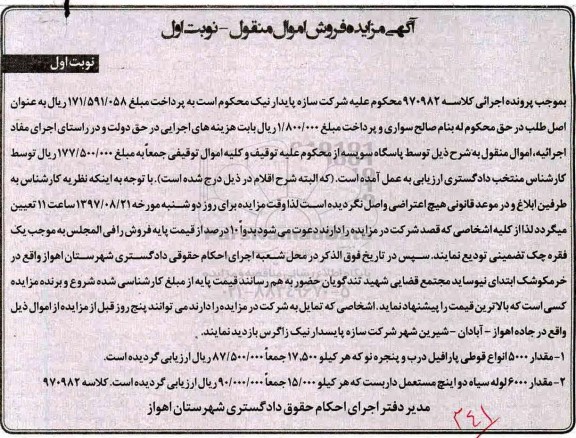 آگهی مزایده فروش اموال منقول - نوبت اول
نوبت اول
بموجب پرونده اجرائی کلاسه ۹۷۰۹۸۲ محکوم علیه شرکت سازه پایدار نیک محکوم است به پرداخت مبلغ ۱۷۱/۵۹۱/۰۵۸ ریال به عنوان
اصل طلب در حق محکوم له بنام صالح سواری و پرداخت مبلغ ۱/۸۰۰/۰۰۰ ریال بابت هزینه های اجرایی در حق دولت و در راستای اجرای مفاد
اجرائیه، اموال منقول به شرح ذیل توسط پاسگاه سویسه از محکوم علیه توقیف و کلیه اموال توقیفی جمعاً به مبلغ ۱۷۷/۵۰۰/۰۰۰ ریال توسط
کارشناس منتخب دادگستری ارزیابی به عمل آمده است. (که البته شرح اقلام در ذیل درج شده است). با توجه به اینکه نظریه کارشناس به
طرفین ابلاغ و در موعد قانونی هیچ اعتراضی واصل نگردیده است لذا وقت مزایده برای روز دوشنبه مورخه ۱۳۹۷/۰۸/۲۱ ساعت ۱۱ تعیین
میگردد لذا از کلیه اشخاصی که قصد شرکت در مزایده را دارند دعوت می شود بدواً ۱۰ درصد از قیمت پایه فروش را فی المجلس به موجب یک
فقره چک تضمینی تودیع نمایند. سپس در تاریخ فوق الذکر در محل شعبه اجرای احکام حقوقی دادگستری شهرستان اهواز واقع در
خرمکوشک ابتدای نیوساید مجتمع قضایی شهید تندگویان حضور به هم رسانند قیمت پایه از مبلغ کارشناسی شده شروع و برنده مزایده
کسی است که بالاترین قیمت را پیشنهاد نماید. اشخاصی که تمایل به شرکت در مزایده را دارند می توانند پنج روز قبل از مزایده از اموال ذیل
واقع در جاده اهواز - آبادان - شیرین شهر شرکت سازه پایسدار نیک زاگرس بازدید نمایند.
۱- مقدار ۵۰۰۰ انواع قوطی پارافیل درب و پنجره نو که هر کیلو ۱۷,۵۰۰ جمعاً ۸۷/۵۰۰/۰۰۰ ریال ارزیابی گردیده است.
۲- مقدار ۶۰۰۰ لوله سیاه دو اینچ مستعمل داربست که هر کیلو ۱۵/۰۰۰ جمعاً ۹۰/۰۰۰/۰۰۰ ریال ارزیابی گردیده است. کلاسه ۹۷۰۹۸۲
مدیر دفتر اجرای احکام حقوق دادگستری شهرستان اهواز
۲۴۱